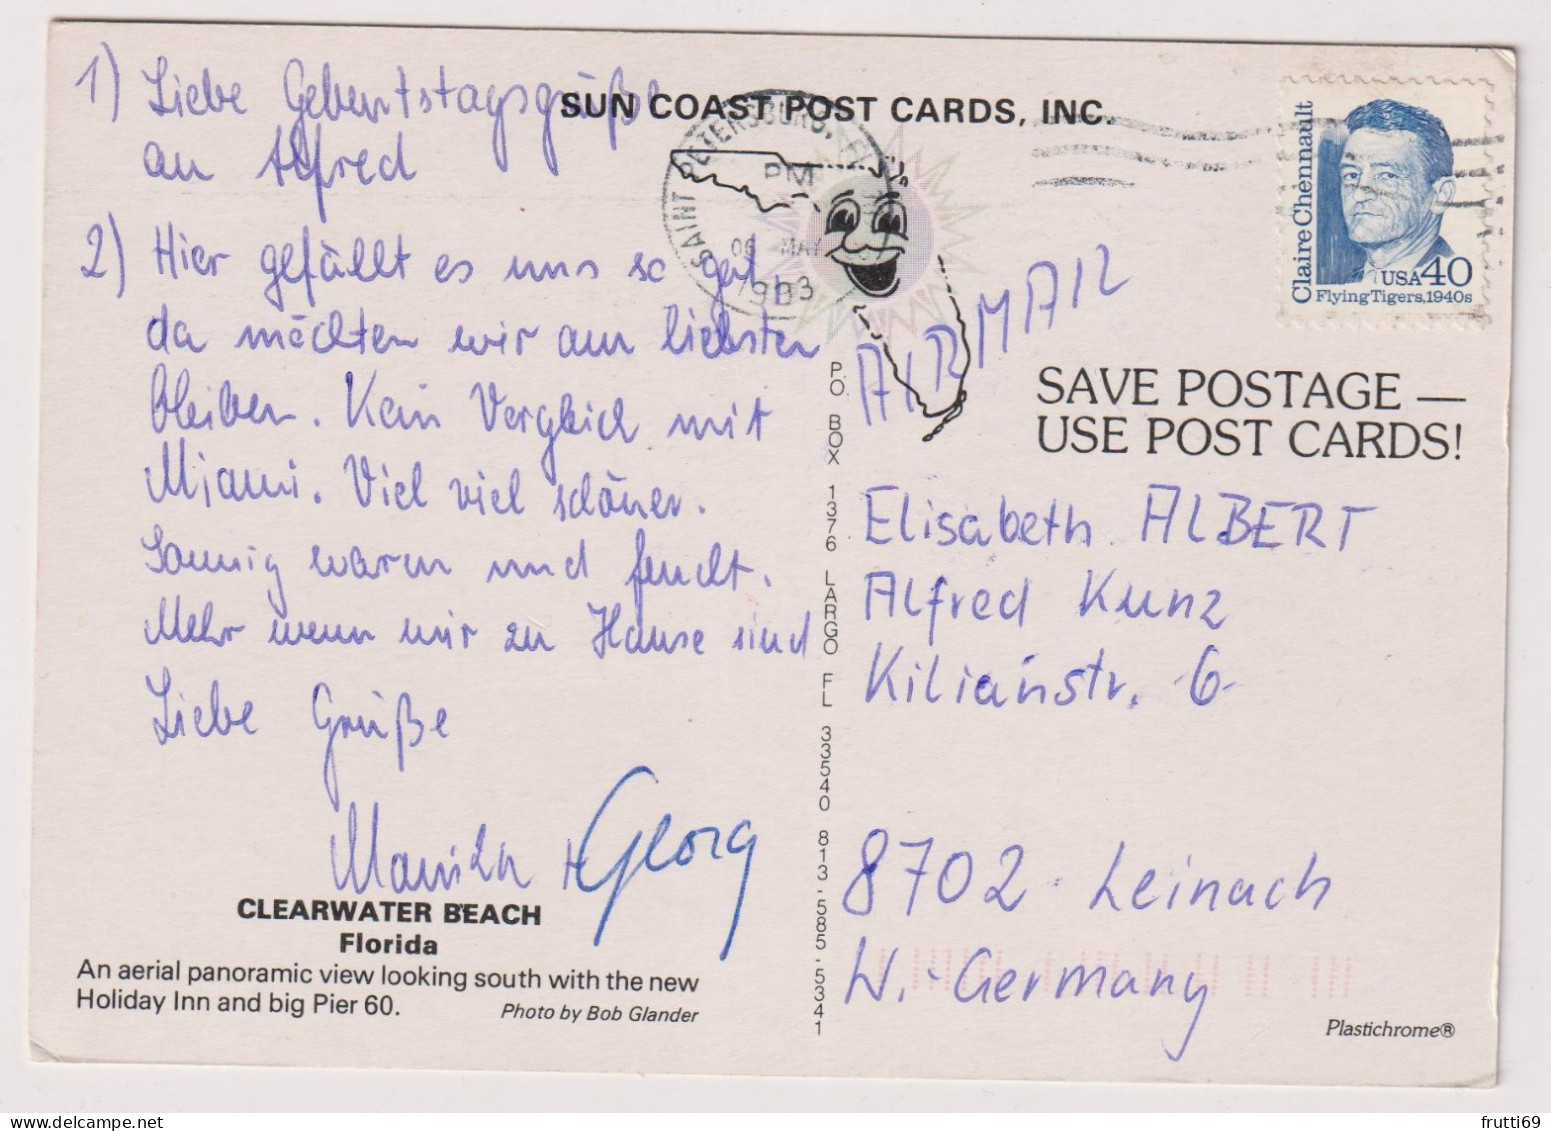 1) Liebe Geburtstagsgrüße
an Alfred
2) Hier gefällt es uns so gut,
da möchten wir am liebsten
bleiben. Kein Vergleich mit
Miami. Viel viel schöner.
Sonnig warm und feucht.
Mehr wenn wir zu Hause sind
Liebe Grüße
Monika + Georg
CLEARWATER BEACH
Florida
An aerial panoramic view looking south with the new
Holiday Inn and big Pier 60.
Photo by Bob Glander
SUN COAST POST CARDS, INC.
P.O. BOX 1376 LARGO FL 33540 813-585-5341
SAINT PETERSBURG, FL
PM
06 MAY
Claire Chennault
USA 40
Flying Tigers, 1940s
AIRMAIL
SAVE POSTAGE —
USE POST CARDS!
Elisabeth ALBERT
Alfred Kunz
Kilianstr. 6
8702 Leinach
W.-Germany
Plastichrome®
frutti69